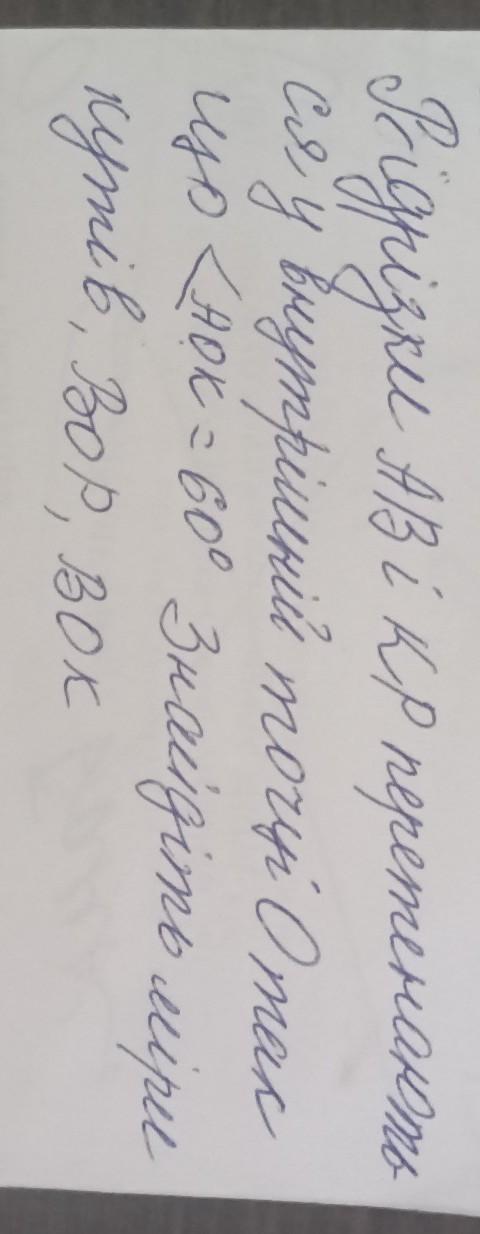 Відрізки АВ і КР перетинають
ся, у внутрішній точці О так
що <АОК = 60° Знайдіть міри
кутів, ВОР, ВОК